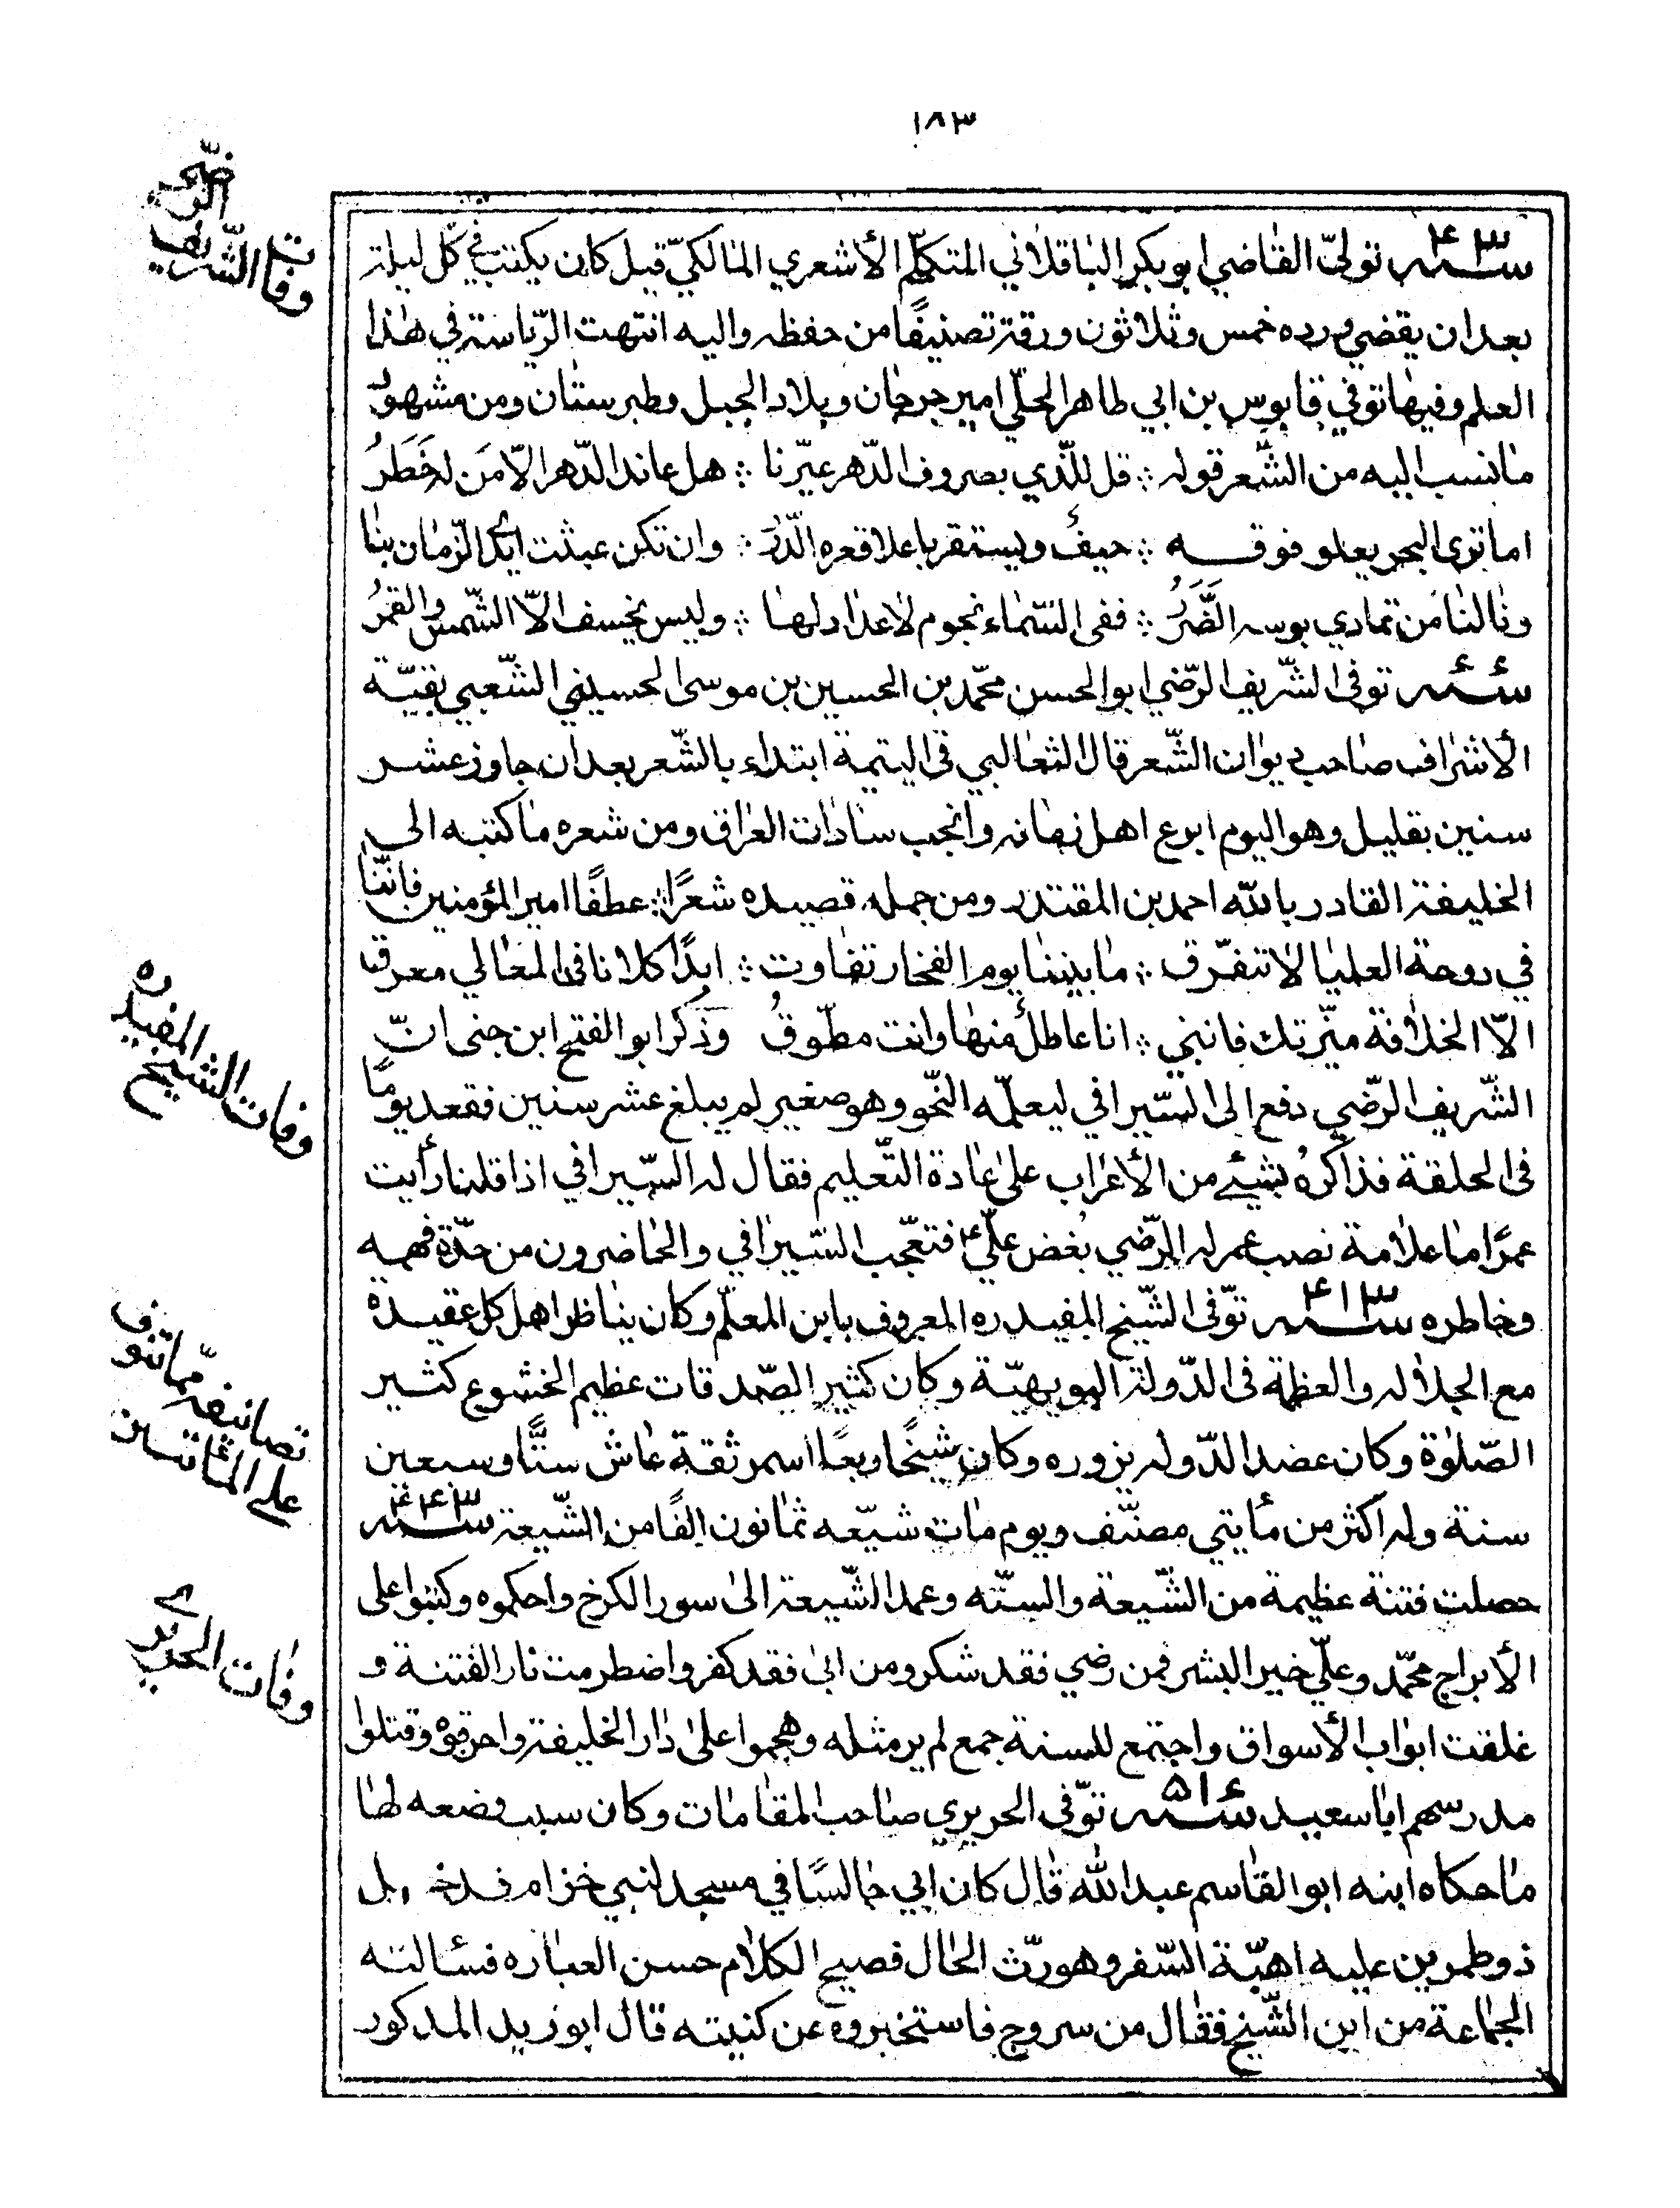 ١٨٣
سنة ٤٠٣ تولىّ القاضي ابو بكر الباقلاني المتكلّم الأشعري المالكيّ قيل كان يكتب في كّل ليلة
بعد ان يقضي ورده خمس وثلاثون ورقة تصنيفًا من حفظه واليه انتهت الرّياسة في هذا
العلم وفيها توفي قابوس بن ابي طاهر الجلّي امير جرجان وبلاد الجبل وطبرستان ومن مشهور
ما نسب اليه من الشّعر قوله ؞ قل للّذي بصروف الدّهر عيّرنا ؞ هل عاند الدّهر الاّ من له خَطَرُ
اما ترى البحر يعلو فوقه ؞ جيفُ ويستقر باعلا قعره الدّررُ ؞ وان تكن عبثت ايدي الزّمان بنا
ونالنا من تمادي بوسه الضَّرَرُ ؞ ففى السّماء نجوم لاعداد لها ؞ وليس يخسف الاّ الشّمس والقمرُ
سنة ٤٠٤ توفى الشّريف الرّضي ابو الحسن محمّد بن الحسين بن موسى الحسيني الشّعبي بقيّة
الأشراف صاحب ديوان الشّعر قال الثعالبي فى اليتيمة ابتداء بالشّعر بعد ان جاوز عشر
سنين بقليل وهو اليوم ابرع اهل زمانه وانجب سادات العراق ومن شعره ما كتبه الى
الخليفة القادر بالله احمد بن المقتدر ومن جمله قصيده شعرًا ؞ عطفًا امير المؤمنين فانّنا
في دوحة العليا لا نتفرّق ؞ ما بيننا يوم الفخار تفاوت ؞ ابدًا كلانا فى المعالي معرق
الاّ الخلافة ميّزتك فانني ؞ انا عاطلُ منها وانت مطّوقُ وذَكَر ابو الفتح ابن جنى انّ
الشّريف الرّضي دفع الى السّيرافي ليعلمّه النّحو وهو صغير لم يبلغ عشر سنين فقعد يومًا
فى الحلقة فذاكرهُ بشيئ من الأعراب على عادة التّعليم فقال له السّيرافي اذا قلنا رأيت
عمرًا ما علامة نصب عمر له الرّضي بُغض عليّ ع فتعّجب السّيرافي والحاضرون من حدّة فهمه
وخاطره سنة ٤١٣ توّفى الشّيخ المفيد ره المعروف بابن المعلّم وكان يناظر اهل كل عقيدة
مع الجلاله والعظمة فى الدّولة البويهيّة وكان كثير الصّدقات عظيم الخشوع كثير
الصّلوة وكان عضد الدّوله يزوره وكان شيخًا وبعًا اسمر ثقة عاش ستًّا وسبعين
سنة وله اكثر من مأيتي مصنّف ويوم مات شيّعه ثمانون الفًا من الشّيعة سنة ٤٤٣
حصلت فتنة عظيمة من الشّيعة والسنّه وعمد الشّيعة الى سور الكرخ واحكموه وكتبوا على
الأبراج محمّد وعليّ خير البشر فمن رضي فقد شكر ومن ابى فقد كفر واضطرمت نار الفتنة و
غلقت ابواب الأسواق واجتمع للسنة جمع لم ير مثله وهجموا على دار الخليفة واحرقوه وقتلوا
مدرسهم ابا سعيد سنة ٥١٤ توّفى الحريري صاحب المقامات وكان سبب وضعه لها
ما حكاه ابنه ابو القاسم عبدالله قال كان ابي جالسًا في مسجد لنبي خزام فدخل
ذو طمرين عليه اهبّة السّفر وهو رثّ الحال فصيح الكلام حسن العباره فسئالته
الجماعة من اين الشّيخ فقال من سروج فاستخبروه عن كنيته قال ابو زيد المدكور
وفات الشّريف الرّضّى
وفات الشيخ المفيد ره
تصانيفه ممّا تنوف
على المائتين
وفات الحريرى